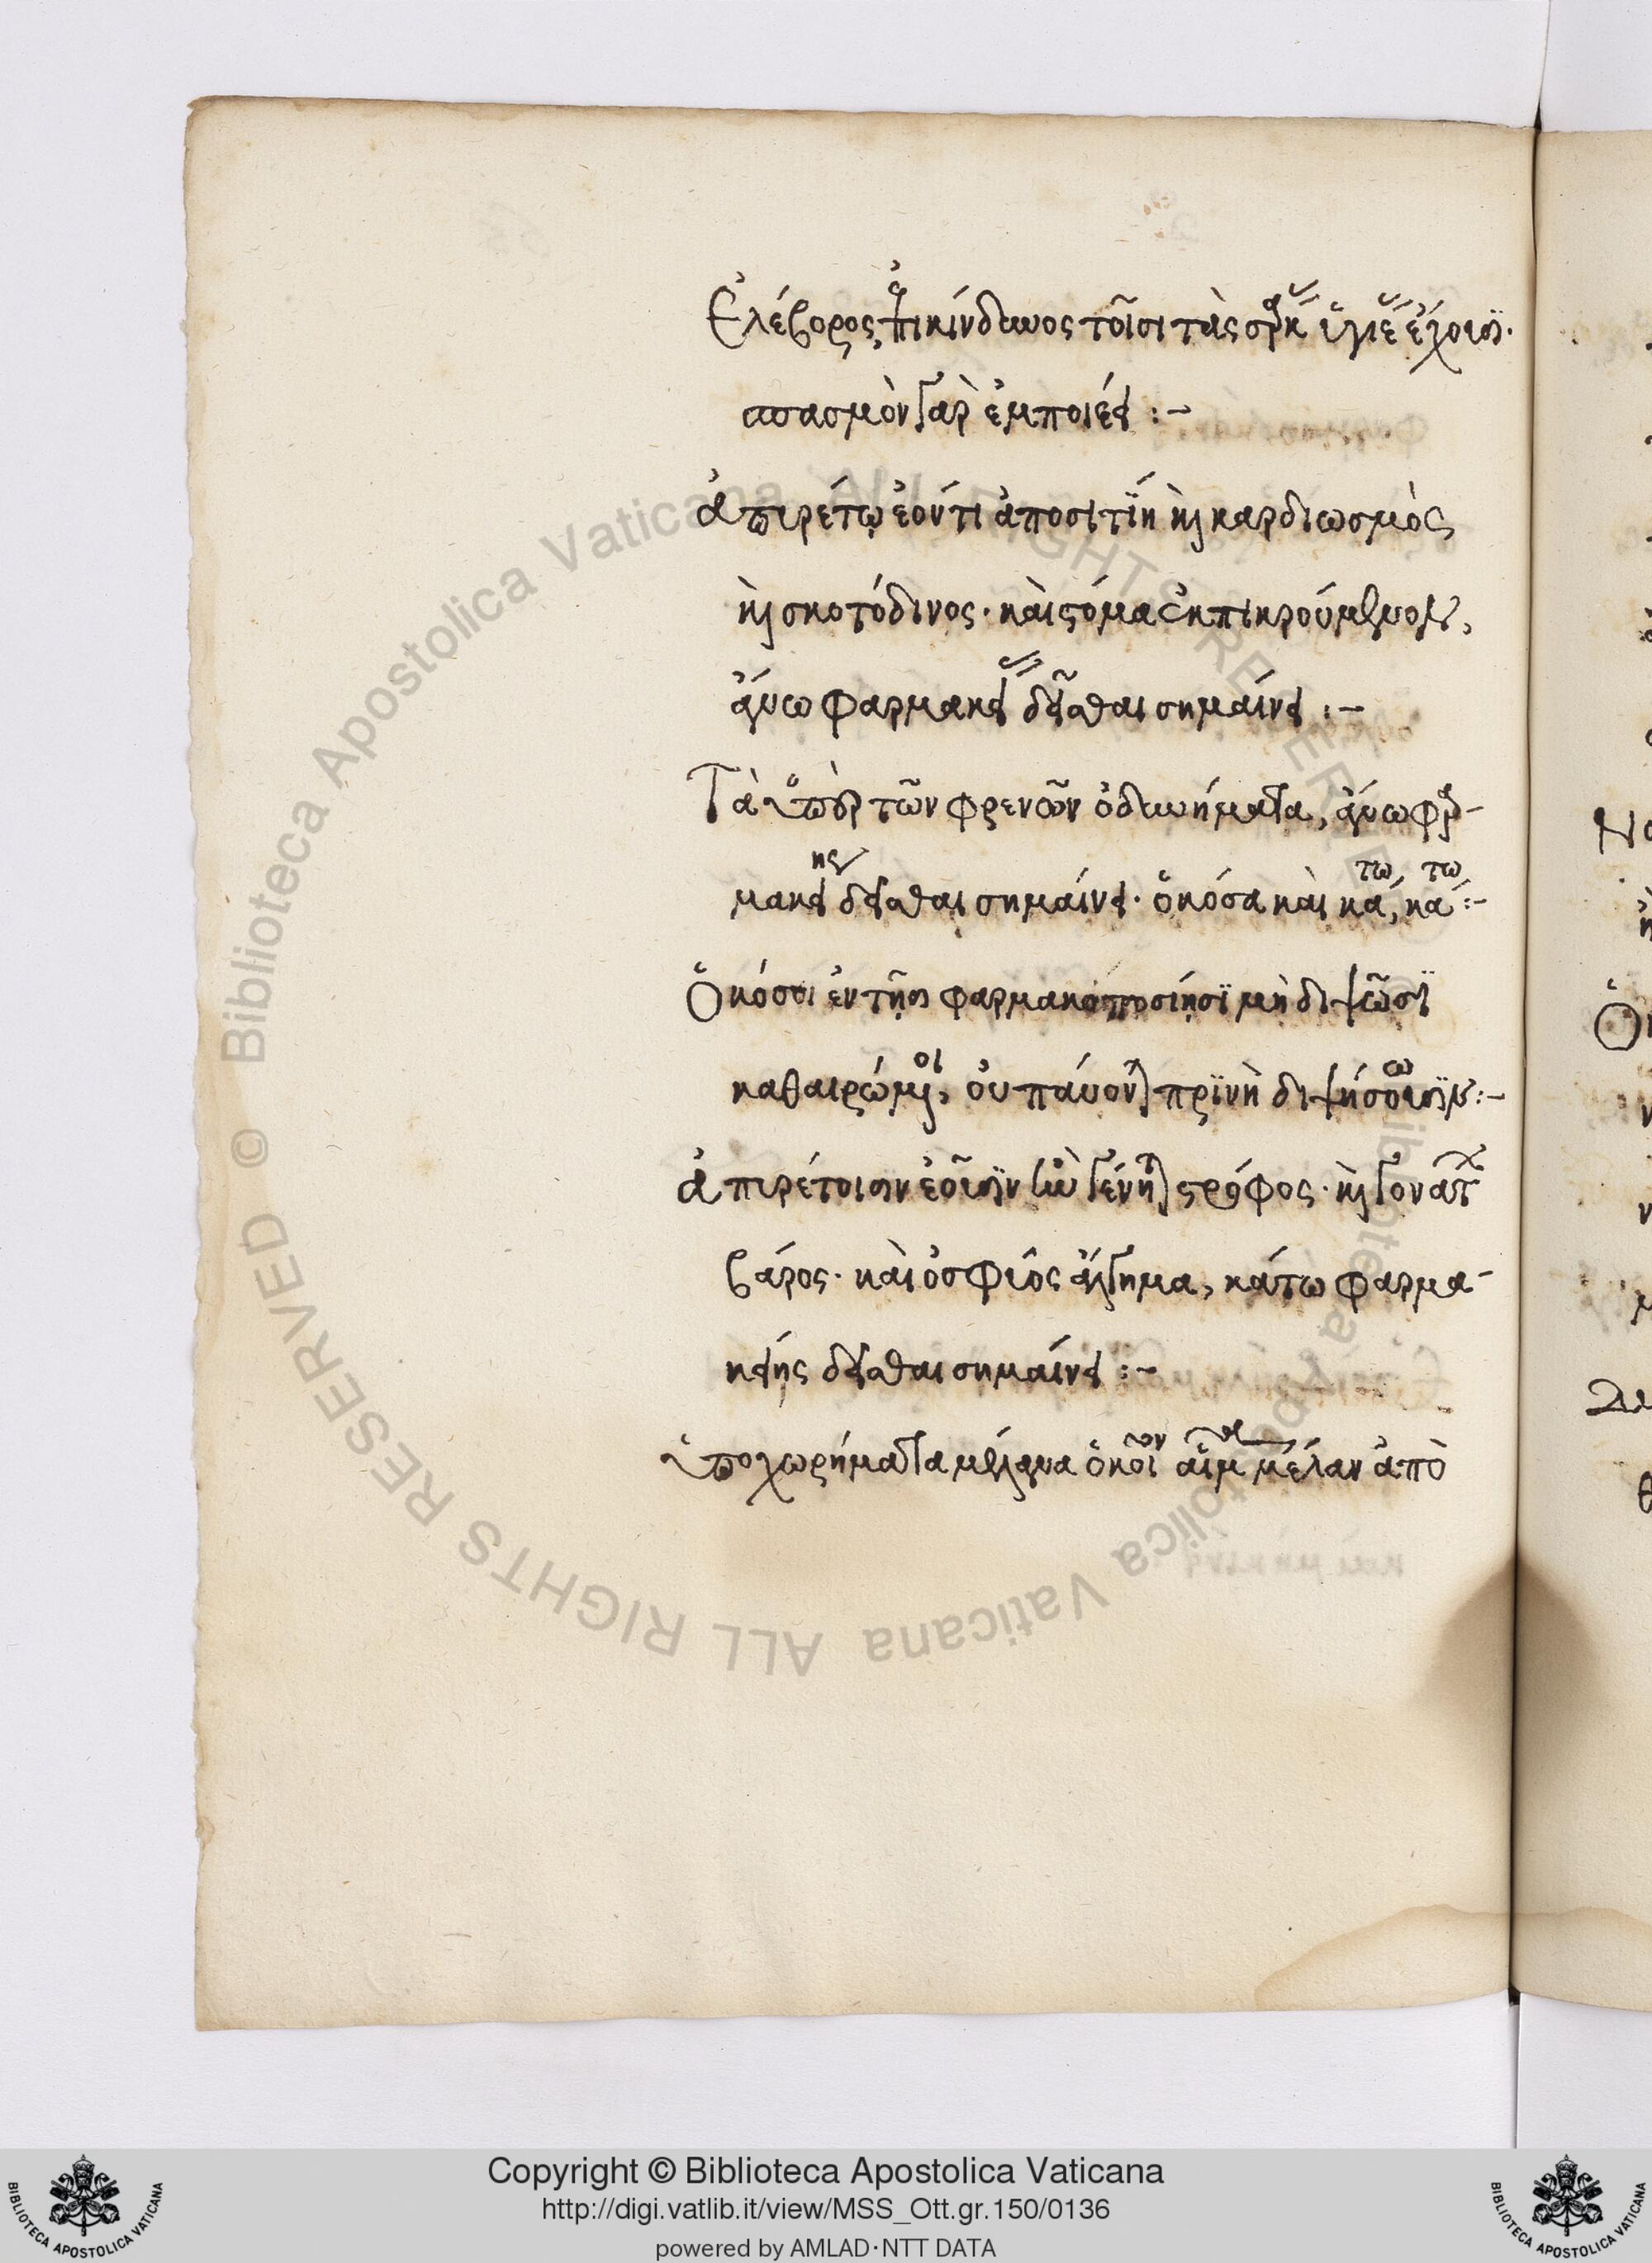 Ἐλέβορος ἐπικίνδυνος τοῖσι τὰς σάρκας ὑγιέας ἔχουσι·
σπασμὸν γὰρ ἐμποιέει :-
ἀπυρέτῳ ἐόντι ἀποσιτίη καὶ καρδιωσμὸς
καὶ σκοτόδινος· καὶ στόμα ἐκπικρούμενον,
ἄνω φαρμακείης δεῖσθαι σημαίνει :-
Τὰ ὑπὲρ τῶν φρενῶν ὀδυνήματα, ἄνω φαρ-
μακείης δεῖσθαι σημαίνει· ὁκόσα καὶ κάτω, κάτω :-
Ὁκόσοι ἐν τῇσι φαρμακοποσίῃσι μὴ διψῶσι
καθαιρόμενοι, οὐ παύονται πρὶν ἢ διψήσωσιν :-
ἀπυρέτοισιν ἐοῦσιν ἢν γένηται στρόφος· καὶ γονάτων
βάρος· καὶ ὀσφύος ἄλγημα, κάτω φαρμα-
κείης δεῖσθαι σημαίνει :-
ὑποχωρήματα μέλανα ὁκοῖον αἷμα μέλαν ἀπὸ
Copyright © Biblioteca Apostolica Vaticana
http://digi.vatlib.it/view/MSS_Ott.gr.150/0136
powered by AMLAD·NTT DATA